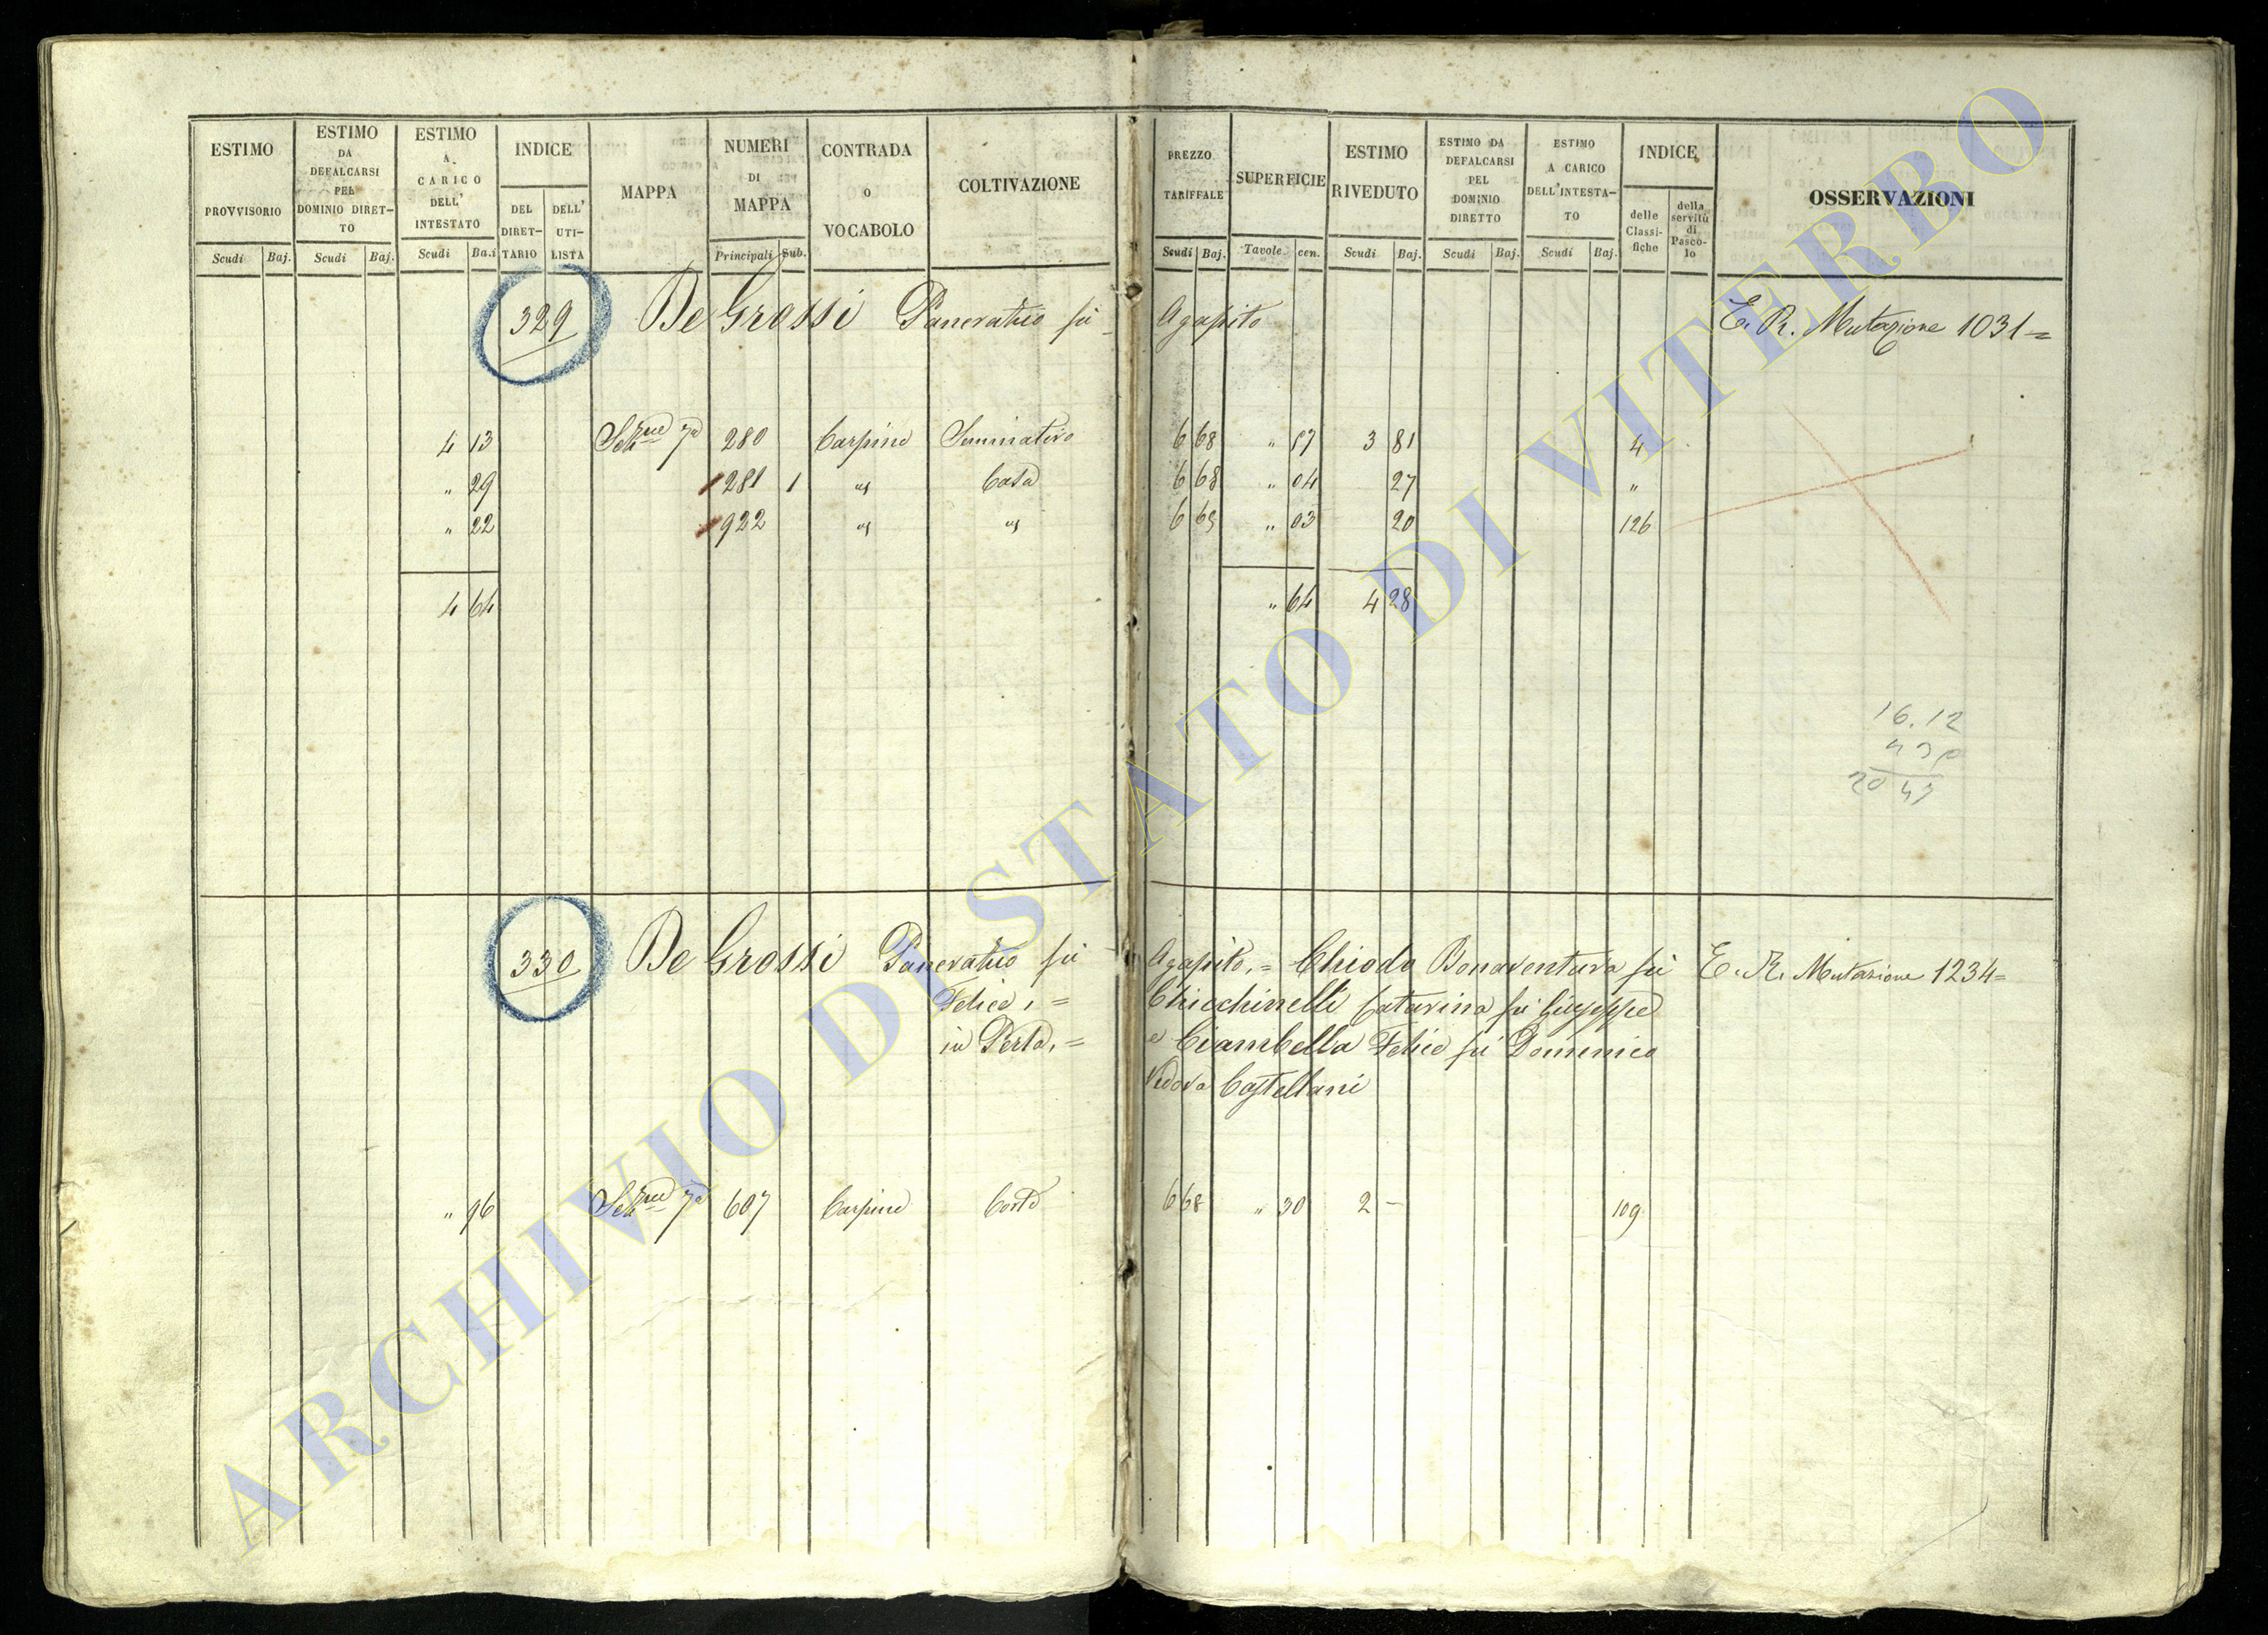 ESTIMO PROVVISORIO
Scudi Baj.
ESTIMO DA DEFALCARSI PEL DOMINIO DIRET-TO
Scudi Baj.
ESTIMO A CARICO DELL' INTESTATO
Scudi Ba.i
INDICE
DEL DIRET-TARIO
DELL' UTI-LISTA
MAPPA
NUMERI DI MAPPA
Principali Sub.
CONTRADA O VOCABOLO
COLTIVAZIONE
PREZZO TARIFFALE
Scudi Baj.
SUPERFICIE
Tavole cen.
ESTIMO RIVEDUTO
Scudi Baj.
ESTIMO DA DEFALCARSI PEL DOMINIO DIRETTO
Scudi Baj.
ESTIMO A CARICO DELL'INTESTA-TO
Scudi Baj.
INDICE
delle Classi-fiche
della servitù di Pasco-lo
OSSERVAZIONI
329 De Grossi Pancratio fu Agapito E. R. Mutazione 1031=
4 13 Sezne 7a 280 Carpine Seminativo 6 68 " 57 3 81 4
" 29 281 1 " Casa 6 68 " 04 27 "
" 22 922 " " 6 68 " 03 20 126
4 64 " 64 4 28
16.12
20 47
330 De Grossi Pancratio fu Agapito, = Chiodo Bonaventura fu E. R. Mutazione 1234=
Felice, = Chiecchinelli Catarina fu Giuseppe
in Perla, = e Ciambella Felice fu Domenico
Vedova Castellani
" 96 Sezne 7a 607 Carpine Corte 6 68 " 30 2 — 109
ARCHIVIO DI STATO DI VITERBO